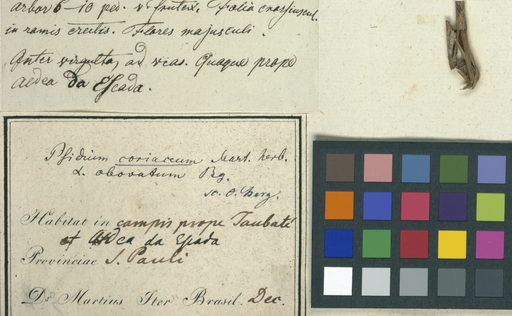 arbor 6 - 10 ped. v. frutex. Folia crassiuscul.
in ramis erectis. Flores majusculi.
Inter virgulta, ad vias. Quaque prope
Aldea da Escada.
Psidium coriaceum Mart. herb.
α. obovatum Bg.
sc. O. Berg.
Habitat in campis prope Taubaté
et Aldea da Escada
Provinciae S. Pauli
Dr Martius Iter Brasil. Dec.